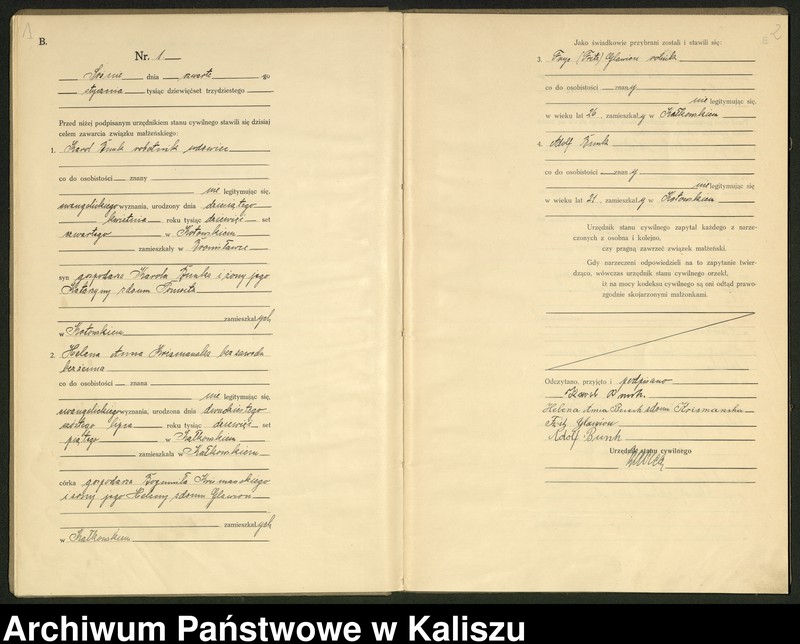 1
B.
Nr. 1
Sośnie dnia czwarte go
stycznia tysiąc dziewięćset trzydziestego
Przed niżej podpisanym urzędnikiem stanu cywilnego stawili się dzisiaj
celem zawarcia związku małżeńskiego:
1. Karol robotnik wdowiec
co do osobistości znany
nie legitymując się,
ewangelickiego wyznania, urodzony dnia dziesiątego
kwietnia roku tysiąc dziewięć set
czwartego w Kotowskiem
zamieszkały w
syn gospodarza Karola i żony jego
Katarzyny z domu
zamieszkałych
w Kotowskiem
2. Helena Anna bez zawodu
co do osobistości znana
nie legitymując się,
ewangelickiego wyznania, urodzona dnia dwudziestego
szóstego lipca roku tysiąc dziewięć set
piątego w Kałkowskiem
zamieszkała w Kałkowskiem
córka gospodarza Bogumiła
i żony jego Heleny z domu Glawion
zamieszkałych
w Kałkowskiem
2
Jako świadkowie przybrani zostali i stawili się:
3. (Fritz) Glawion rolnik
co do osobistości znany
nie legitymując się,
w wieku lat 26, zamieszkały w Kałkowskiem
4. Adolf
co do osobistości znany
nie legitymując się,
w wieku lat 21, zamieszkały w Kotowskiem
Urzędnik stanu cywilnego zapytał każdego z narze-
czonych z osobna i kolejno,
czy pragną zawrzeć związek małżeński.
Gdy narzeczeni odpowiedzieli na to zapytanie twier-
dząco, wówczas urzędnik stanu cywilnego orzekł,
iż na mocy kodeksu cywilnego są oni odtąd prawo-
zgodnie skojarzonymi małżonkami.
Odczytano, przyjęto i podpisano
Karol
Helena Anna z domu
Fritz Glawion
Adolf
Urzędnik stanu cywilnego
Archiwum Państwowe w Kaliszu